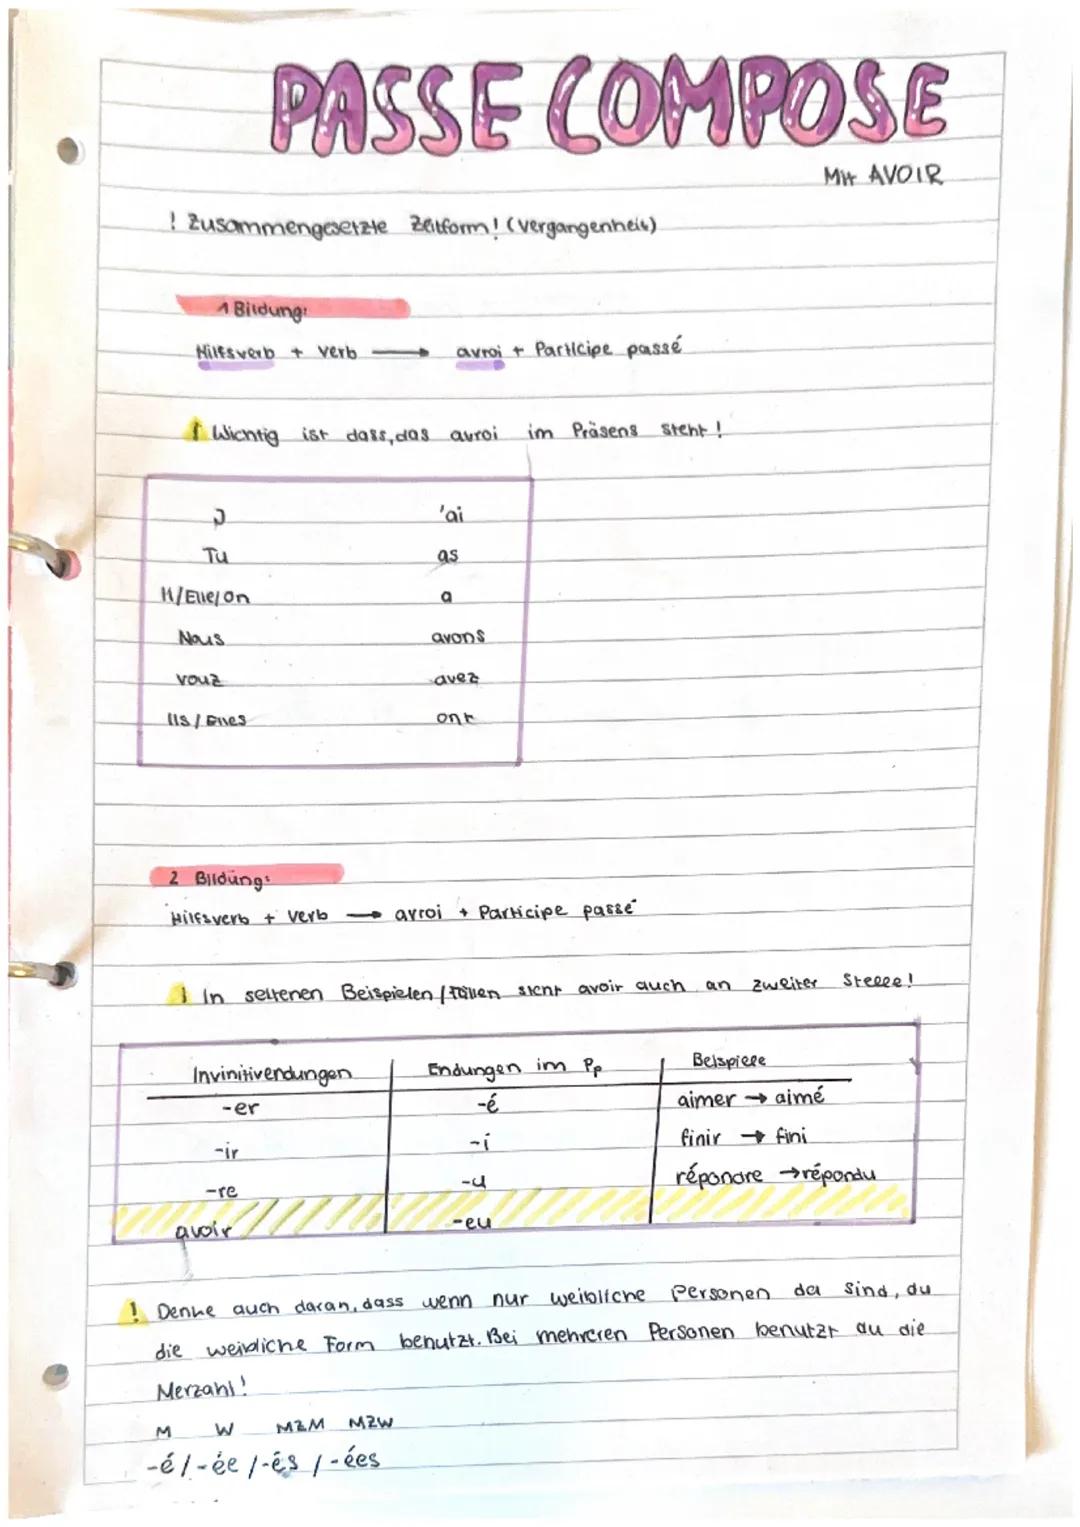 PASSE COMPOSE
Mit AVOIR
! Zusammengesetzte Zeitform! (Vergangenheit)
1 Bildung:
Hilfsverb + Verb → avroi + Participe passé
! Wichtig ist dass, das avroi im Präsens steht!
J 'ai
Tu as
Il/Elle/On a
Nous avons
vouz avez
Ils/Elles ont
2 Bildung:
Hilfsverb + Verb → avroi + Participe passé
! In seltenen Beispielen/Fällen steht avoir auch an zweiter Stelle!
Invinitivendungen Endungen im Pp Beispiele
-er -é aimer → aimé
-ir -i finir → fini
-re -u répondre → répondu
avoir -eu
! Denke auch daran, dass wenn nur weibliche Personen da sind, du
die weibliche Form benutzt. Bei mehreren Personen benutzt du die
Merzahl!
M W MZM MZW
-é/-ée/-és/-ées